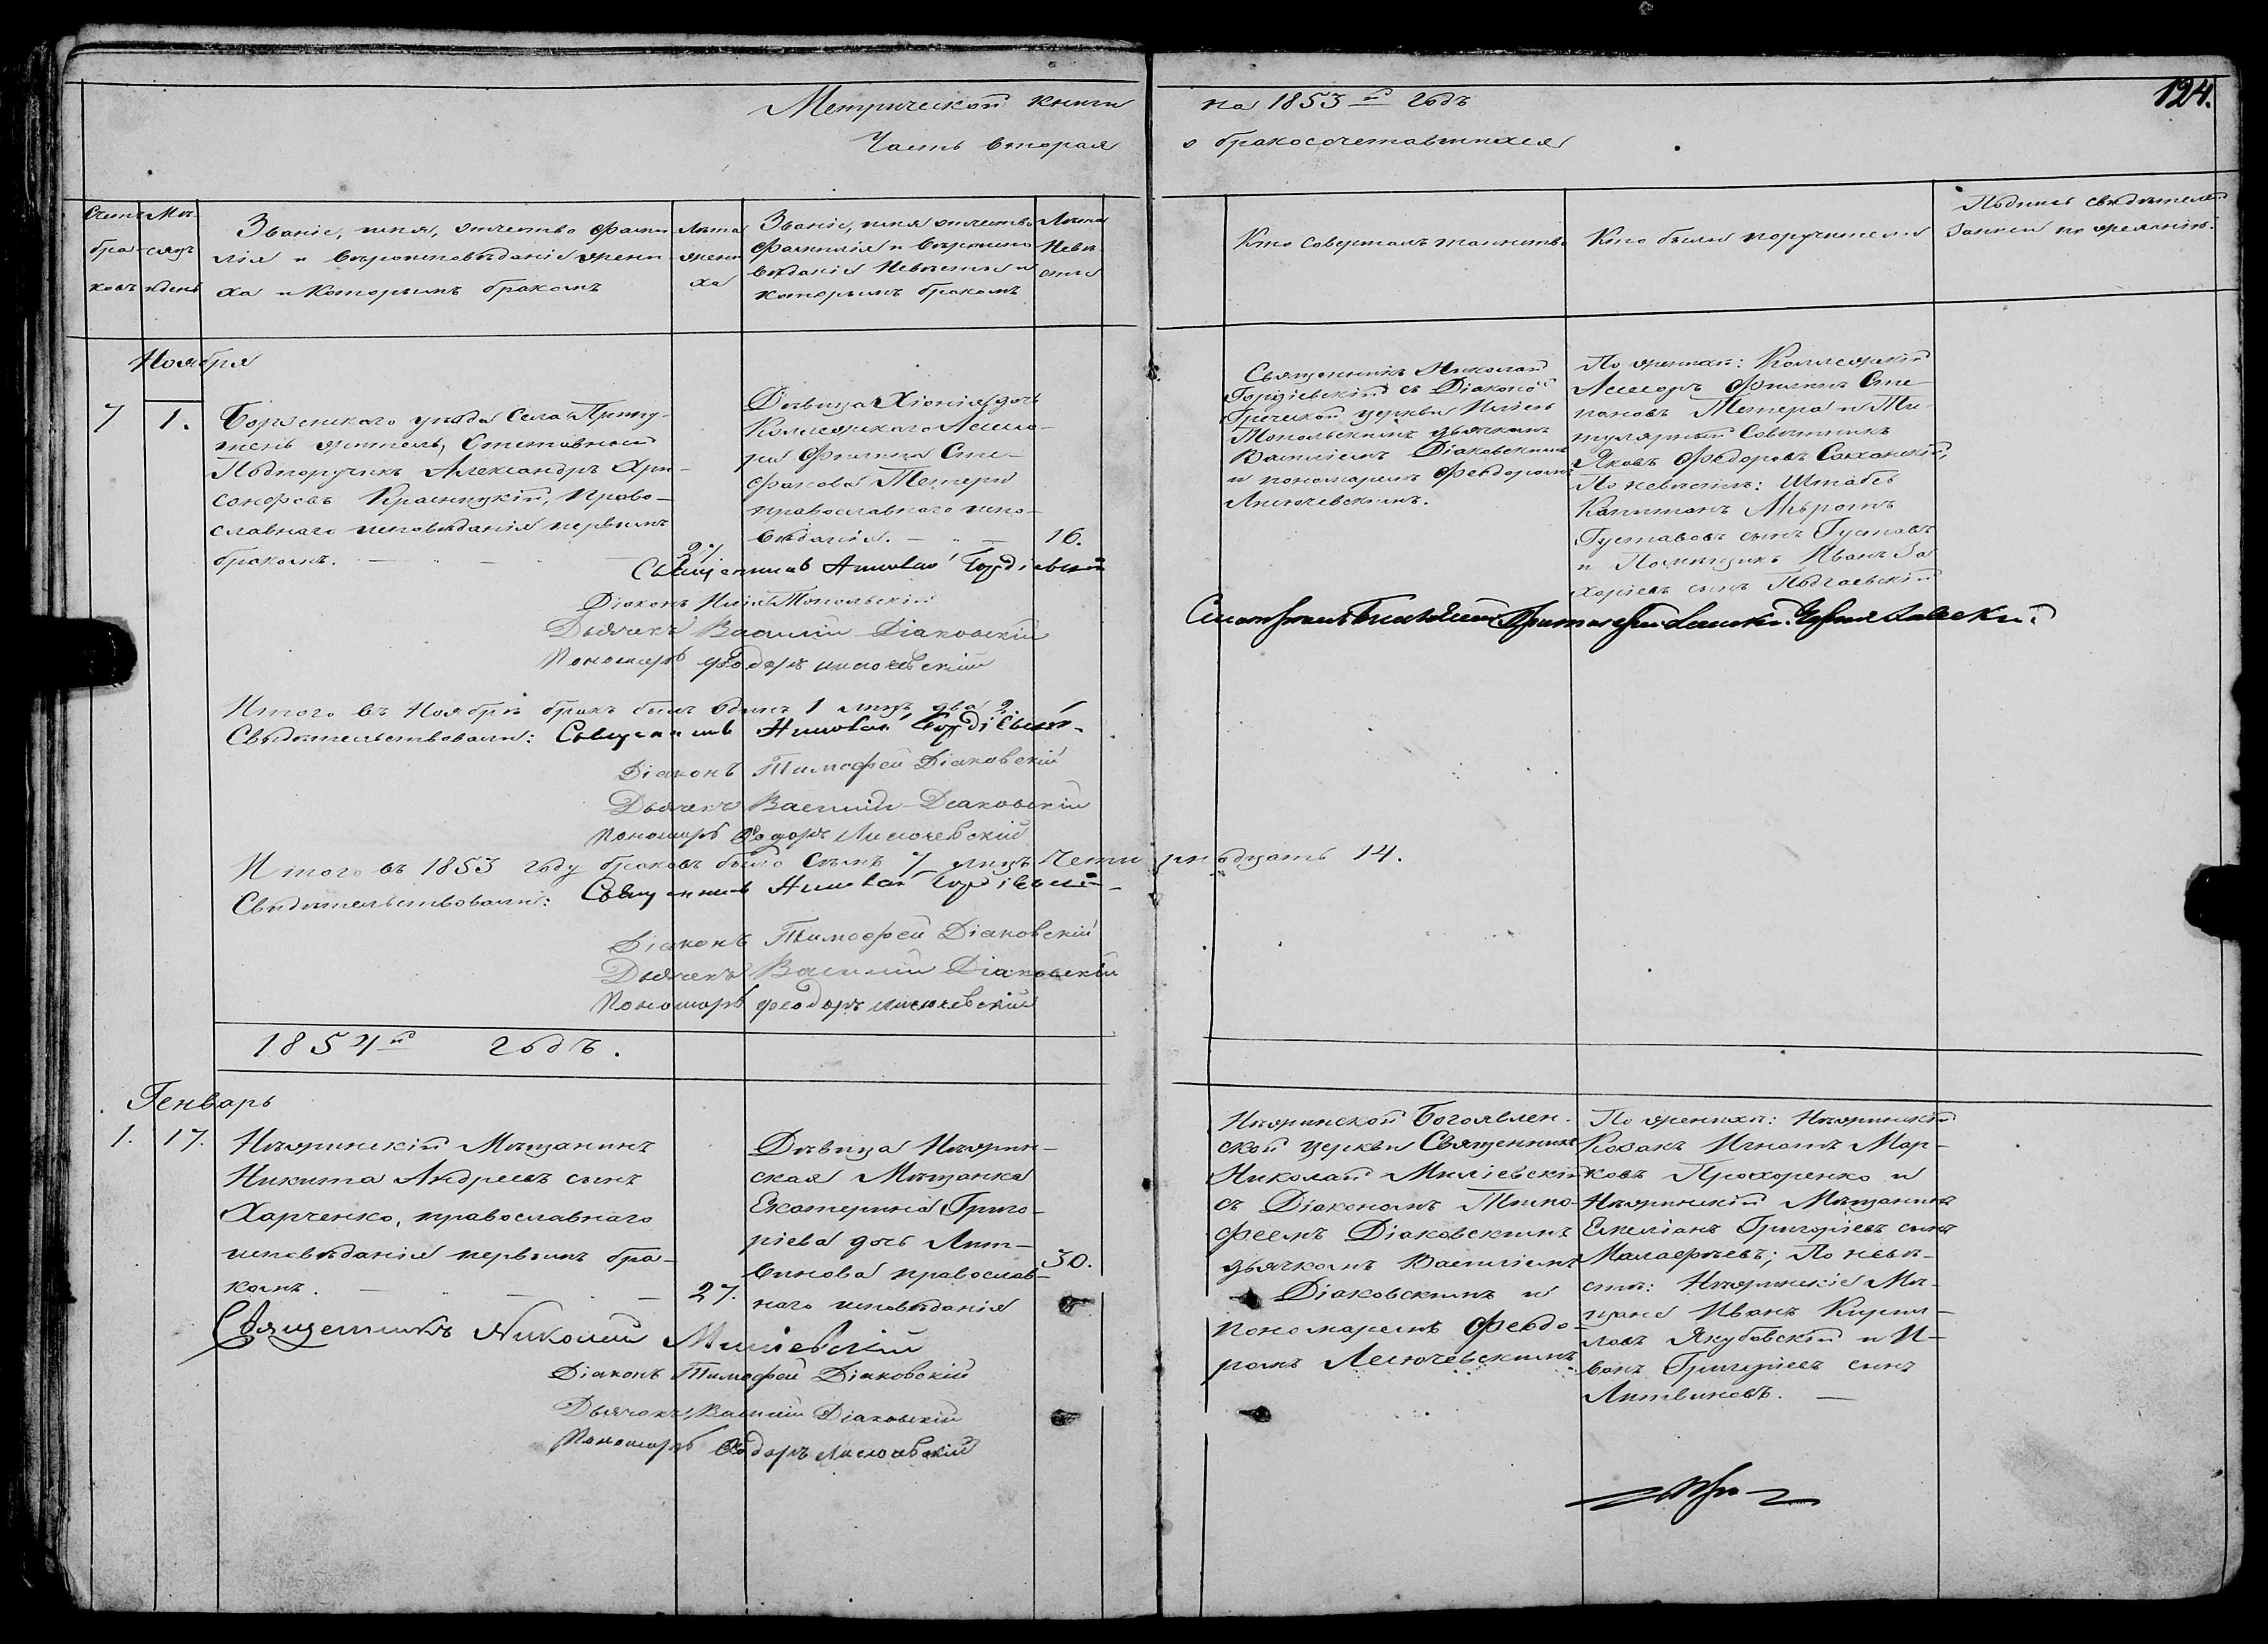 124.
Метрической книги на 1853й годъ
Часть вторая о бракосочетавшихся
Счетъ браковъ
Мѣсяцъ и день
Званіе, имя, отчество фами
лія и вѣроисповѣданіе жени
ха и которымъ бракомъ
Лѣта
жени
ха
Званіе, имя отчество
фамилія и вѣроиспо
вѣданіе невѣсты и
которымъ бракомъ
Лѣта
Невѣ
сты
Кто совершалъ таинство
Кто были поручители
Подпись свидѣтелей
записи по желанію.
Ноября
7
1.
Борзенскаго уѣзда села
житель, Отставной
Подпоручикъ Александръ Хри
санфовъ Красницкій, право-
славнаго исповѣданія первымъ
бракомъ.
27
Дѣвица Хіонія дочь
Коллежскаго Ассесо-
ра Филипа Сте-
фанова Тетери
православнаго испо-
вѣданія.
16.
Священникъ Николай
Гордіевскій съ Діакономъ
Греческой церкви Иліею
Топольскимъ дьячкомъ
Василіемъ Діаковскимъ
и пономаремъ Феодоромъ
Лисючевскимъ.
По женихѣ: Коллежскій
Ассесоръ Филипъ Сте
пановъ Тетеря и Ти-
тулярный Совѣтникъ
Яковъ Федоровъ Саханскій,
По невѣстѣ: Штабсъ
Капитанъ
Густавовъ сынъ Густавъ
и Помѣщикъ Иванъ За
харіевъ сынъ Подгаевскій
Священникъ Николай Гордіевскій
Діаконъ Илія Топольскій
Дьячекъ Василій Діаковскій
Пономарь Феодоръ Лисючевскій
Итого въ Ноябрѣ бракъ былъ одинъ 1 лицъ два 2.
Свидѣтельствовали: Священникъ Николай Гордіевскій
Діаконъ Тимофей Діаковскій
Дьячекъ Василій Діаковскій
Пономарь Федоръ Лисючевскій
Итого въ 1853 году браковъ было семь 7 лицъ четырнадцать 14.
Свидѣтельствовали: Священникъ Николай Гордіевскій
Діаконъ Тимофей Діаковскій
Дьячекъ Василій Діаковскій
Пономарь Феодоръ Лисючевскій
1854й годъ.
Генварь
1.
17.
Нѣжинскій Мѣщанинъ
Никита Андреевъ сынъ
Харченко, православнаго
исповѣданія первымъ бра-
комъ.
27.
Дѣвица Нѣжин-
ская Мѣщанка
Екатерина Григо-
ріева дочь Лит-
винова православ-
наго исповѣданія
30.
Нѣжинской Богоявлен-
ской церкви Священникъ
Николай Миліевскій
съ Діакономъ Тимо-
феемъ Діаковскимъ
дьячкомъ Василіемъ
Діаковскимъ и
пономаремъ Феодо-
ромъ Лисючевскимъ
По женихѣ: Нѣжинскій
Козакъ Игнатъ Мар-
ковъ Прохоренко и
Нѣжинскій Мѣщанинъ
Емеліанъ Григоріевъ сынъ
Малафѣевъ; По невѣ-
стѣ: Нѣжинскіе Мѣ-
щане Иванъ Кирил-
ловъ Якубовскій и И-
ванъ Григоріевъ сынъ
Литвиновъ.
Священникъ Николай Миліевскій
Діаконъ Тимофей Діаковскій
Дьячекъ Василій Діаковскій
Пономарь Федоръ Лисючевскій